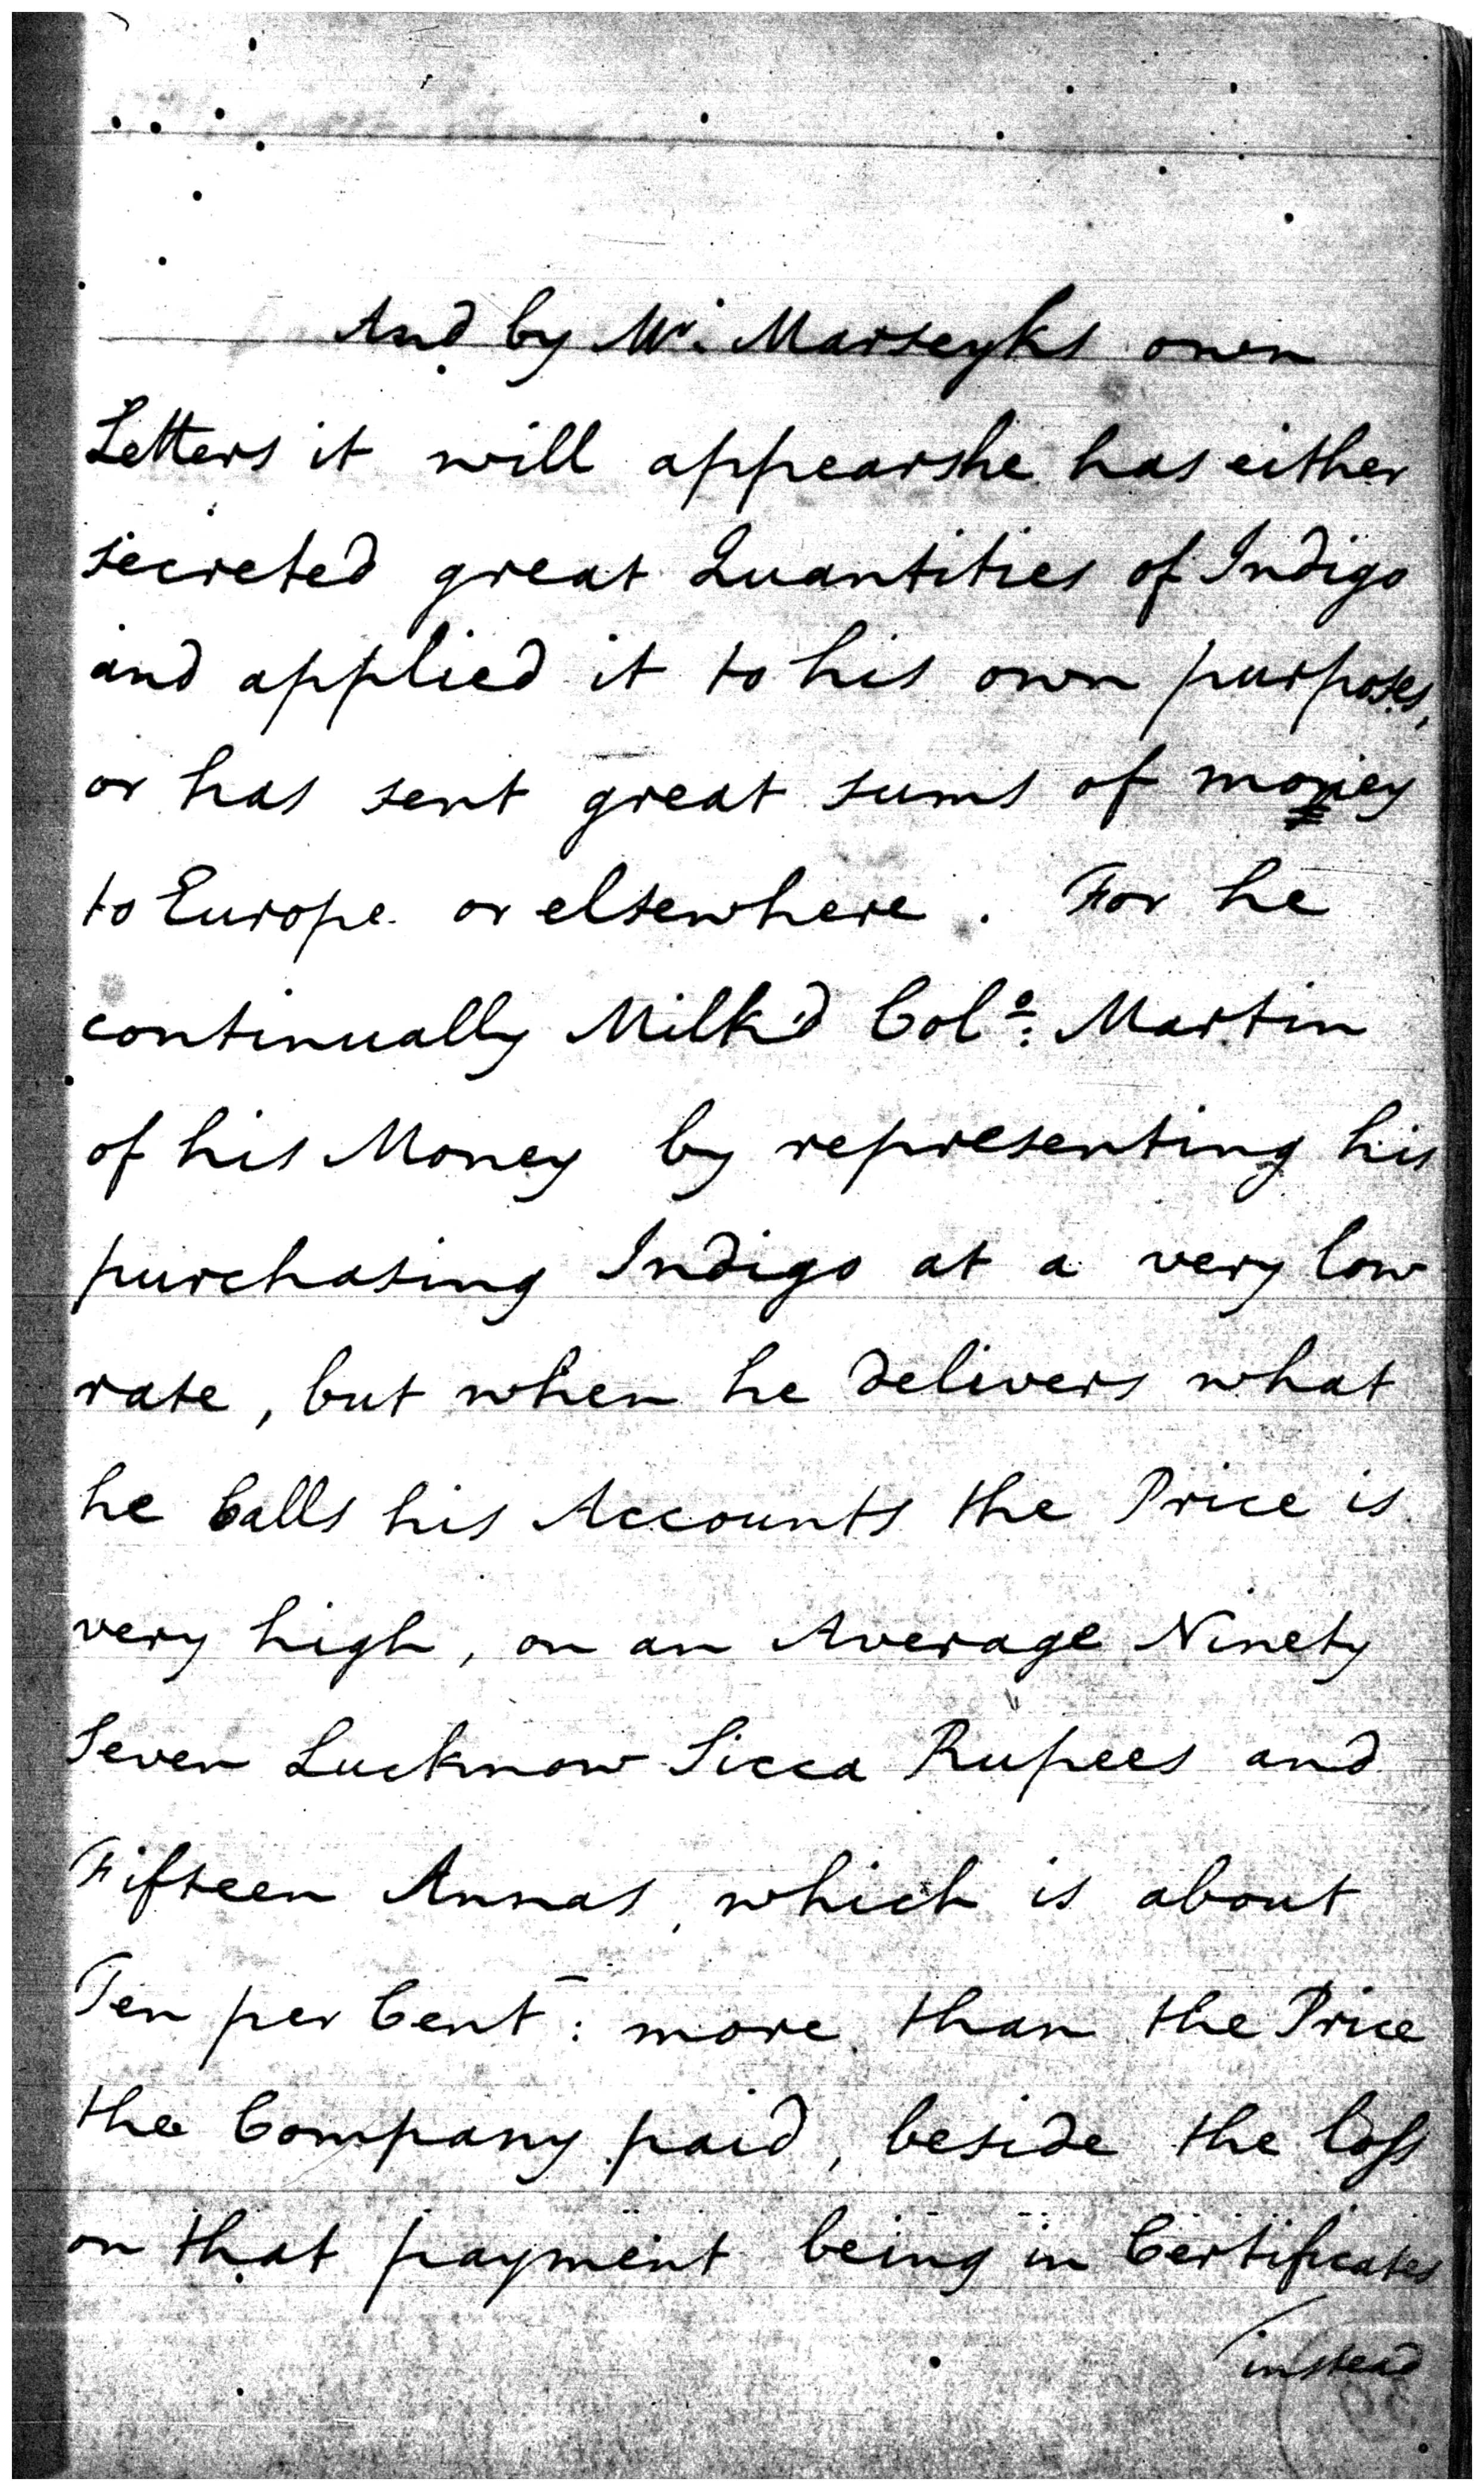 And by Mr. Marseyks own
Letters it will appearshe has either
secreted great Quantities of Indigo
and applied it to his own purposes,
or has sent great sums of money
to Europe or elsewhere. For he
continually Milk'd Colo: Martin
of his Money by representing his
purchasing Indigo at a very low
rate, but when he delivers what
he Calls his Accounts the Price is
very high, on an Average Ninety
Seven Lucknow Sicca Rupees and
Fifteen Annas, which is about
Ten per Cent: more than the Price
the Company paid, beside the loss
on that payment being in Certificates
instead